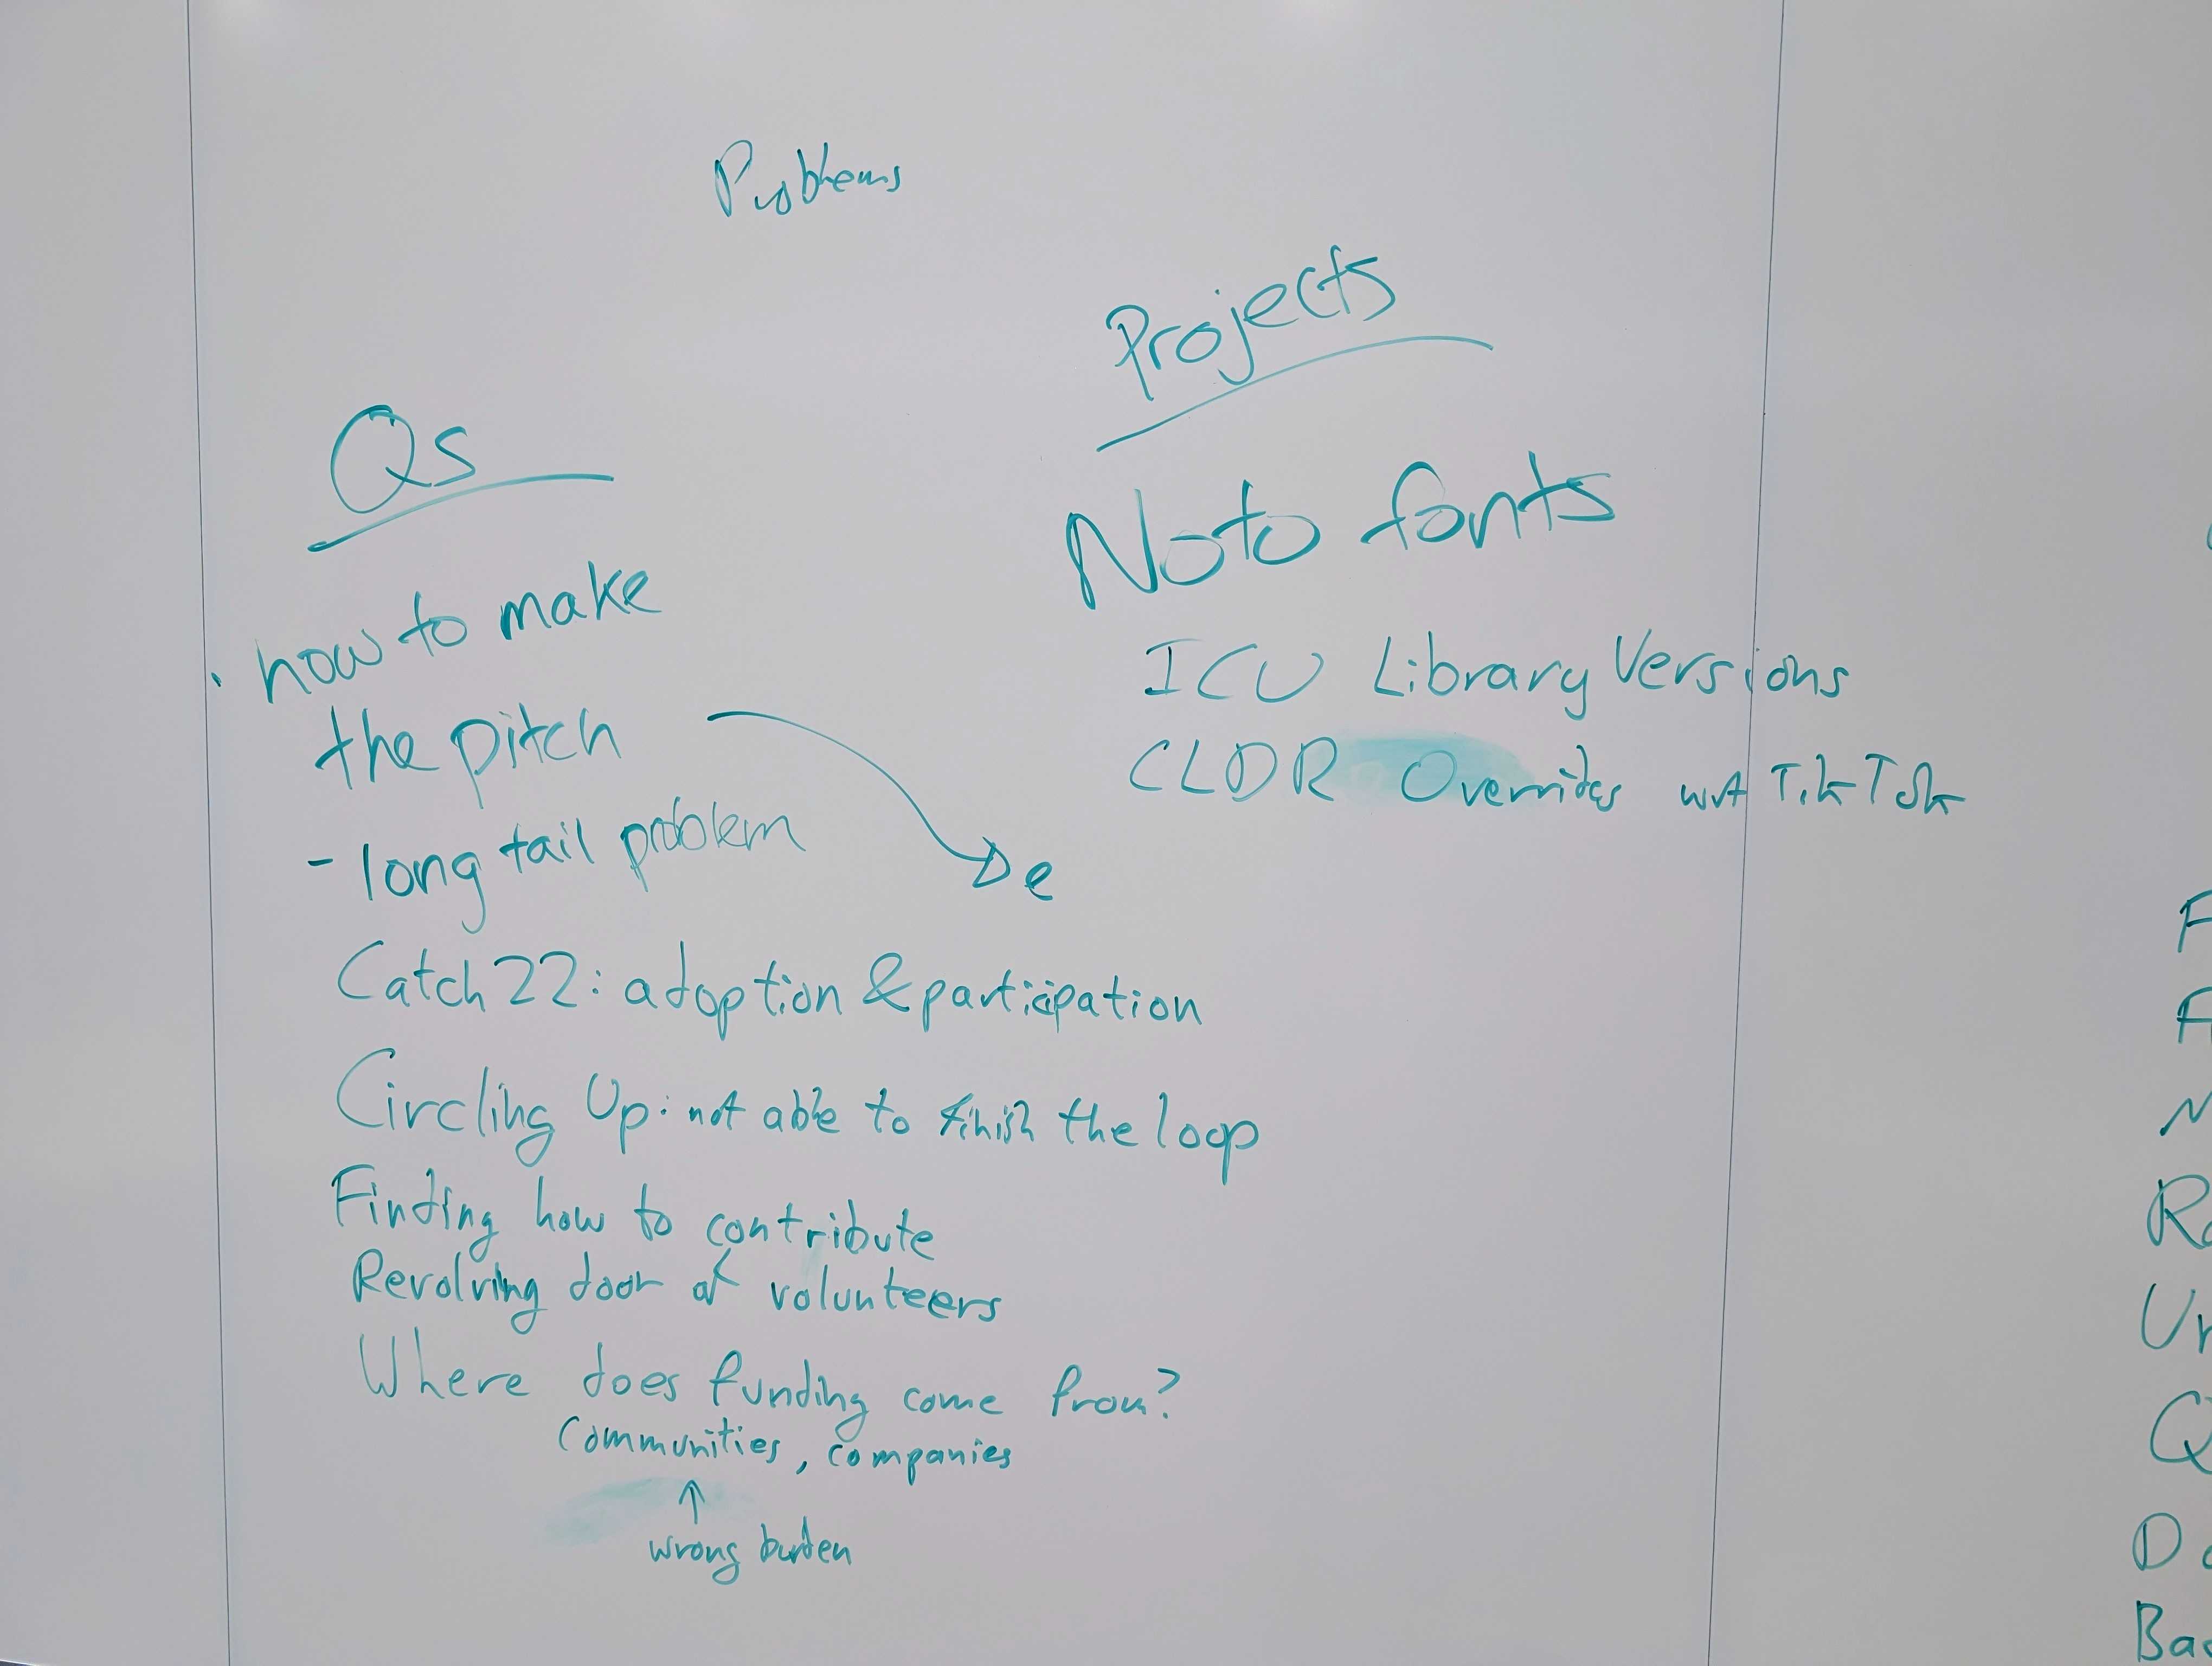 Problems
Projects
Qs
Noto fonts
ICU Library Versions
CLDR Overrides TikTok
· how to make
the pitch
e
- long tail problem
Catch 22: adoption & participation
Circling Up: not able to finish the loop
Finding how to contribute
Revolving door of volunteers
Where does funding come from?
Communities, companies
↑
wrong burden
F
F
N
Ro
Un
Q
Do
Bas